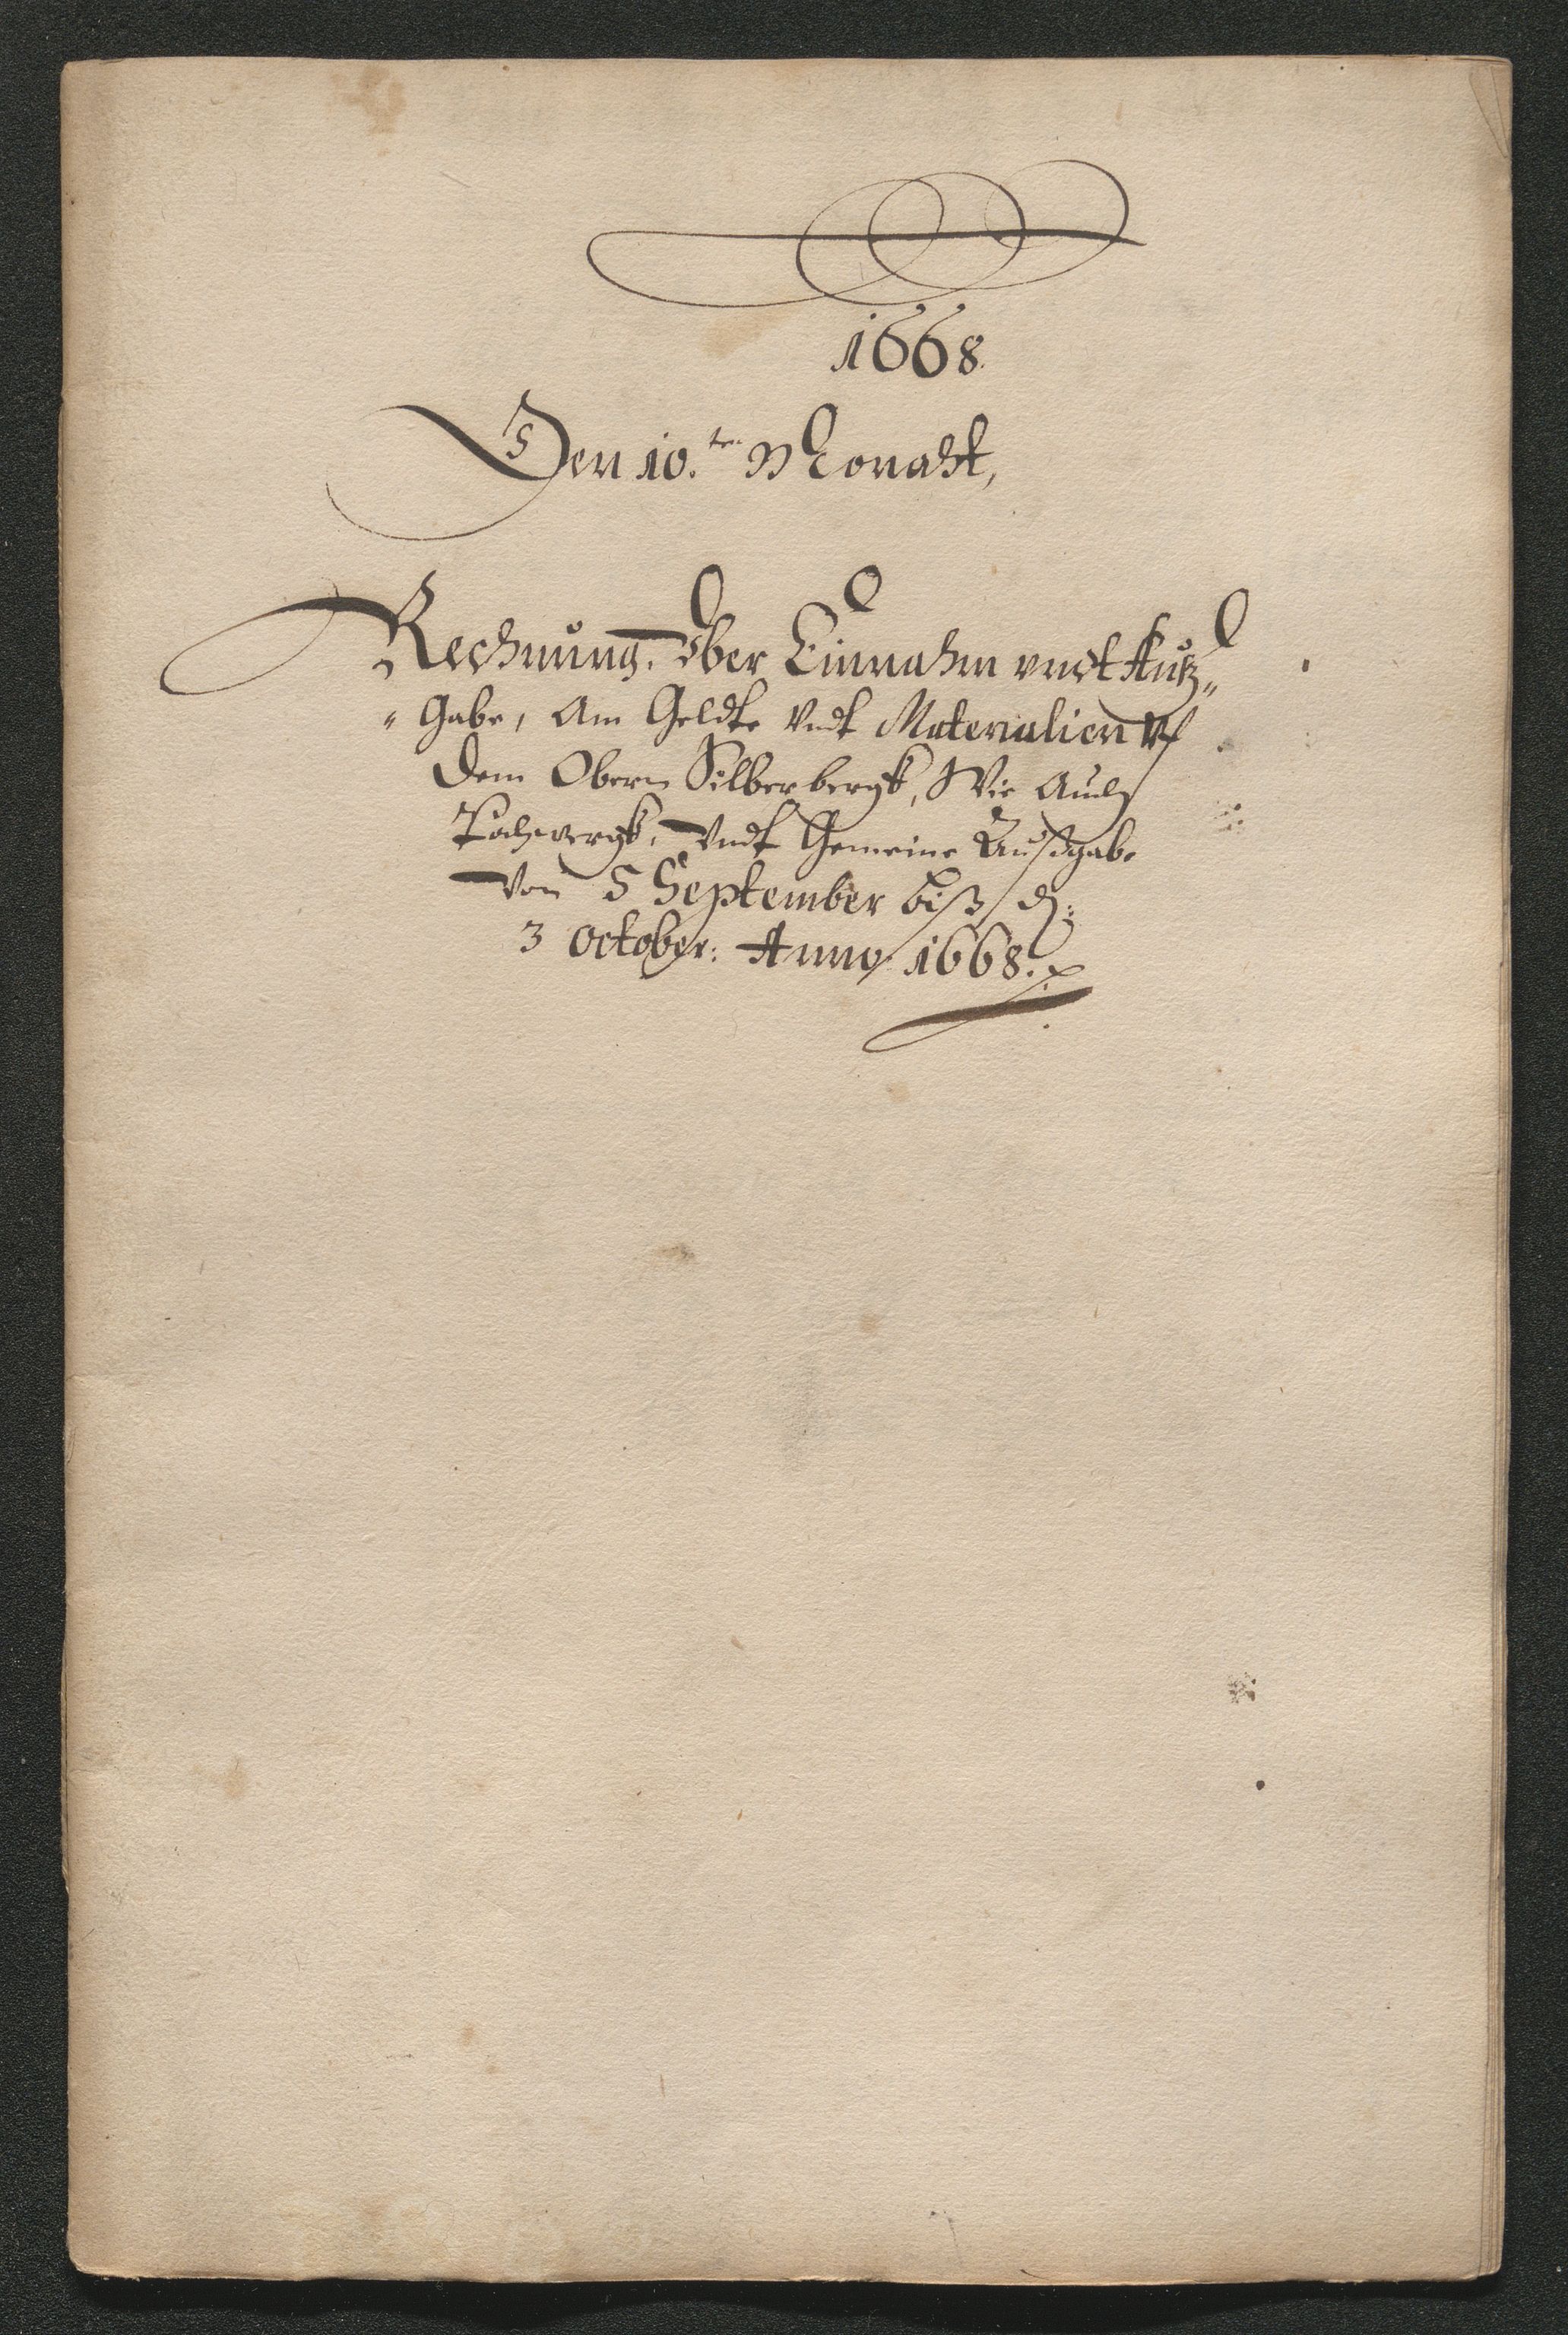 1668.
Den 10.ten Monaht,
Rechnung. Vber Einnahm vndt Auß„
„Gabe, Am Geldte Vndt Materialien Vf
dem Obern Silberbergk, Wie Auch
Pochwergk, Vndt Gemeine Außgabe
Von 5 September biß d:
3 October: Anno 1668.